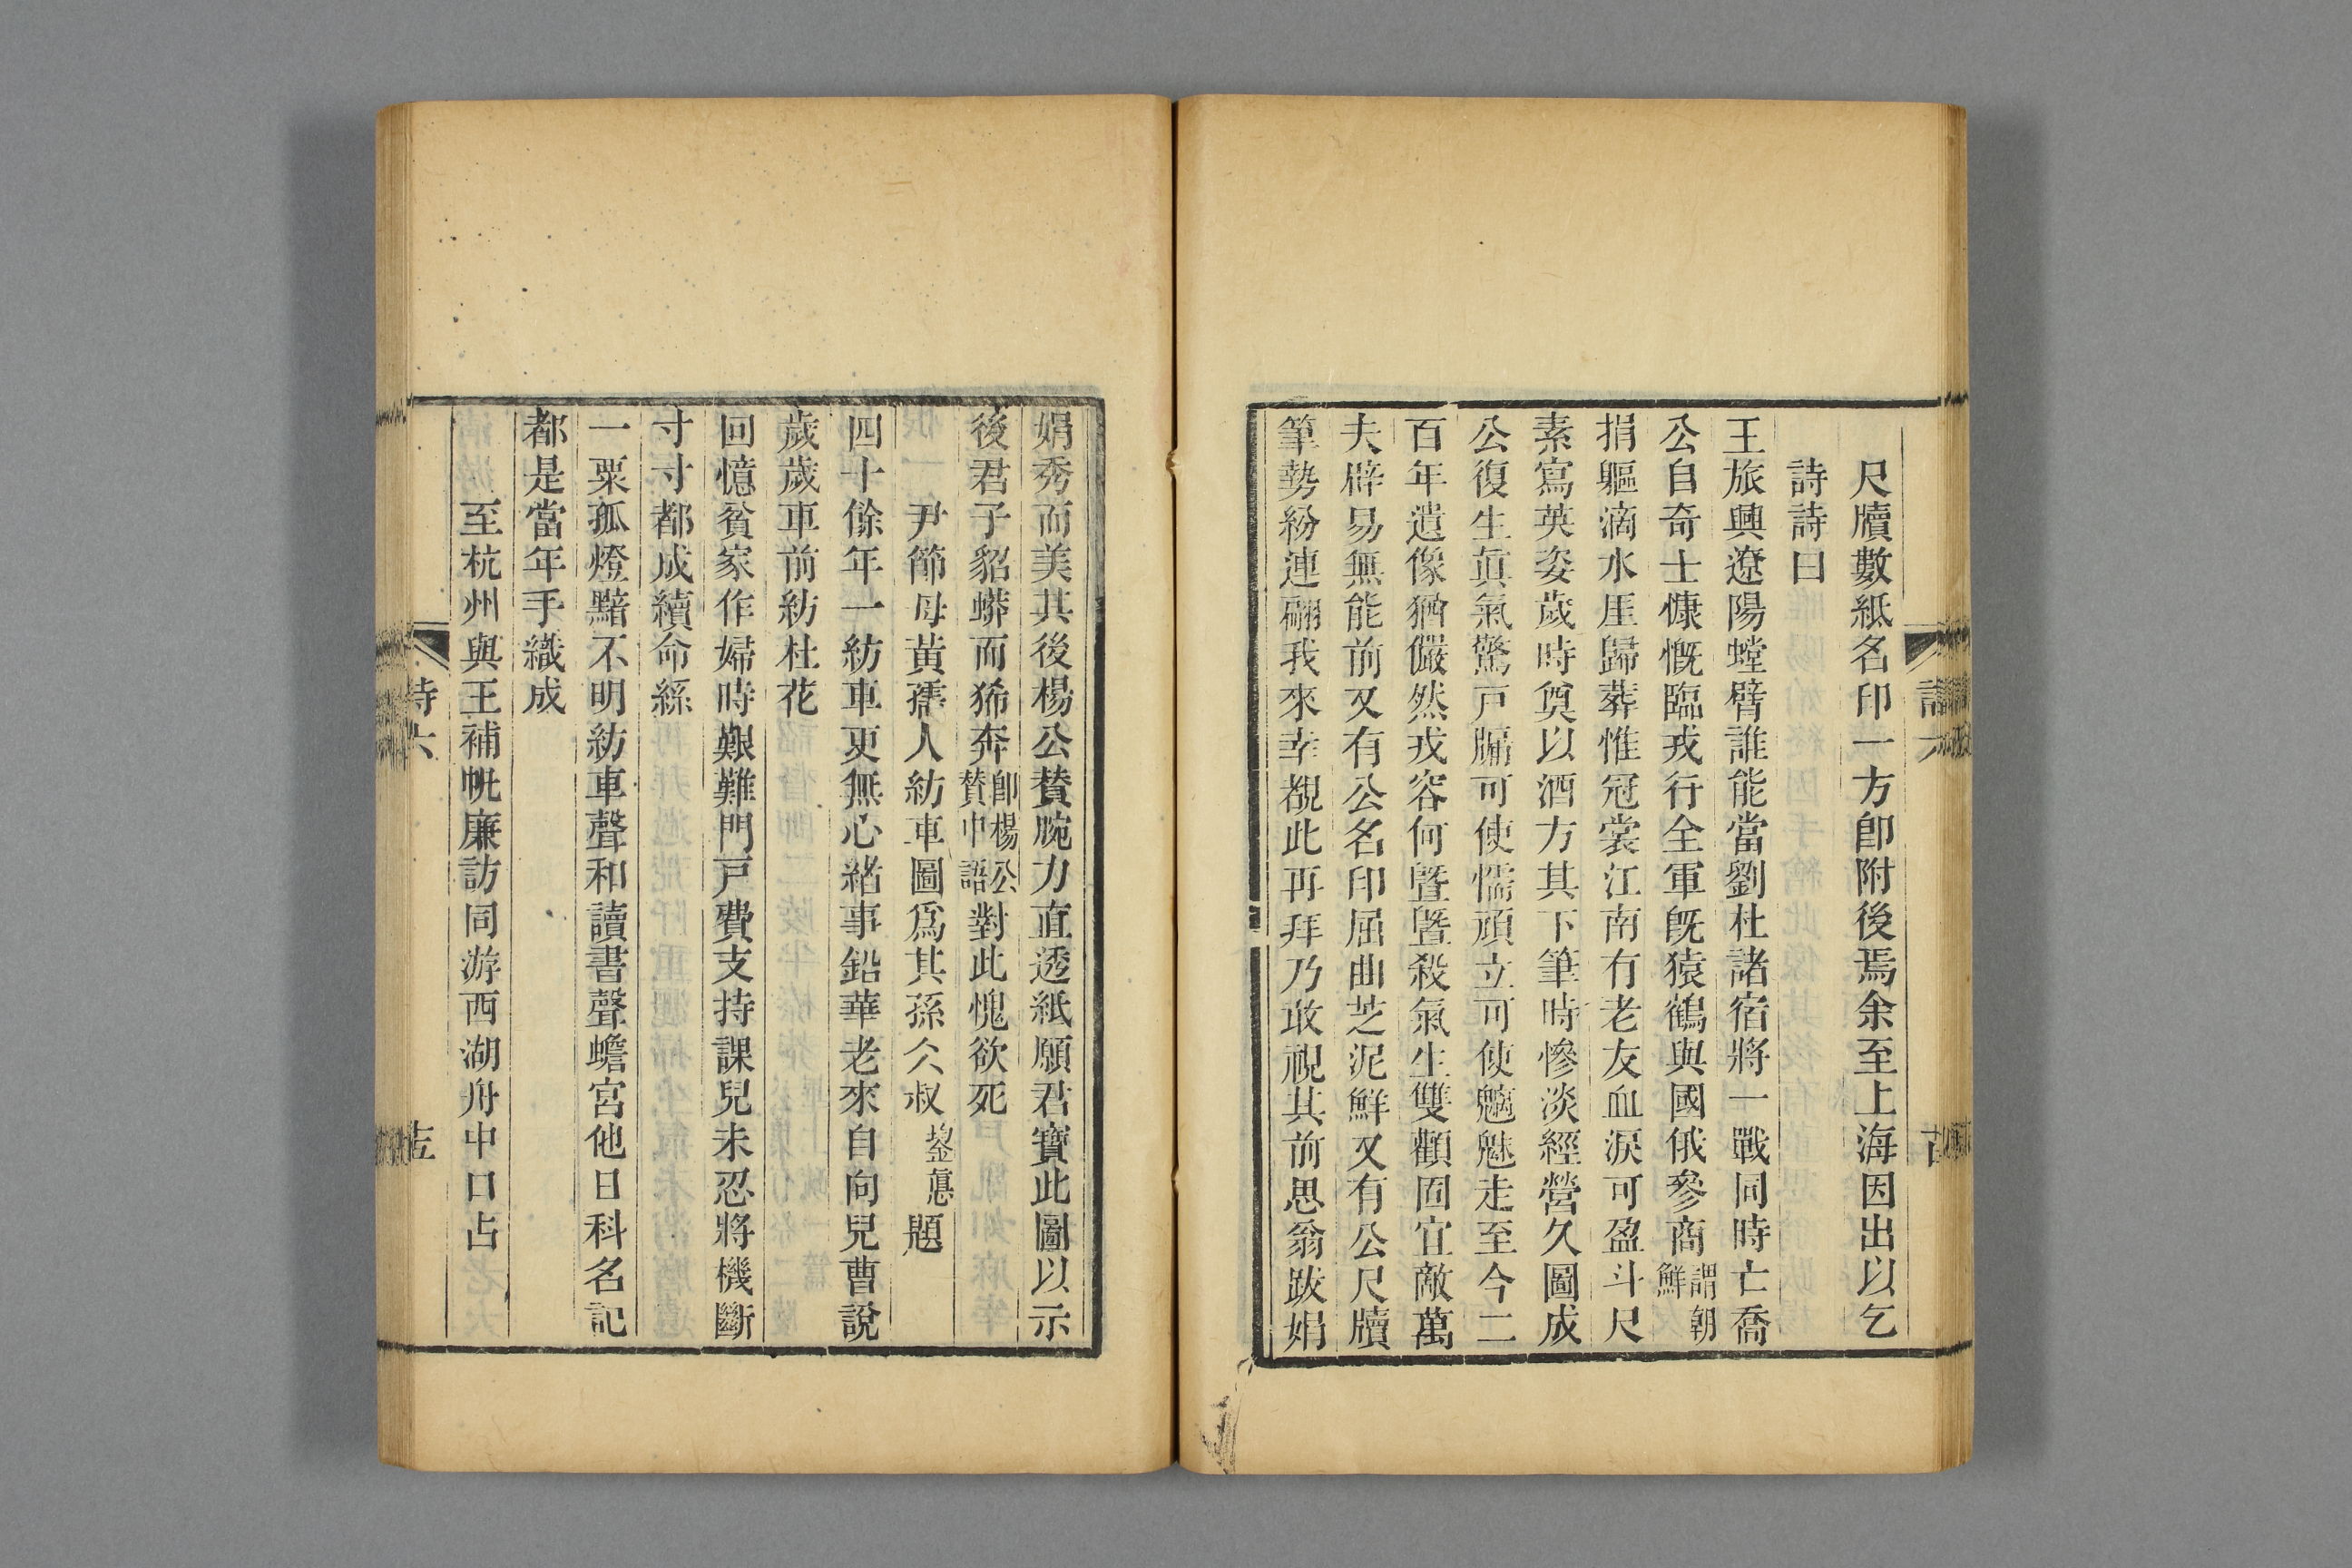 尺牘數紙名印一方卽附後焉余至上海因出以乞
詩詩曰
王旅興遼陽螳臂誰能當劉杜諸宿將一戰同時亡喬
公自奇士慷慨臨戎行全軍旣猿鶴與國俄參商謂朝鮮
捐軀滴水厓歸葬惟冠裳江南有老友血淚可盈斗尺
素寫英姿歲時奠以酒方其下筆時慘淡經營久圖成
公復生眞氣驚戸牖可使懦頑立可使魑魅走至今二
百年遺像猶儼然戎容何曁曁殺氣生雙顴固宜敵萬
夫辟易無能前又有公名印屈曲芝泥鮮又有公尺牘
筆勢紛連翩我來幸覩此再拜乃敢視其前思翁跋娟
娟秀而美其後楊公賛腕力直透紙願君寶此圖以示
後君子貂蟒而狶奔卽楊公賛中語對此愧欲死
尹節母黃孺人紡車圖爲其孫仌叔鋆悳題
四十餘年一紡車更無心緒事鉛華老來自向兒曹說
歲歲車前紡杜花
回憶貧家作婦時艱難門戸費支持課兒未忍將機斷
寸寸都成續命絲
一粟孤燈黯不明紡車聲和讀書聲蟾宮他日科名記
都是當年手織成
至杭州與王補帆廉訪同游西湖舟中口占
詩六